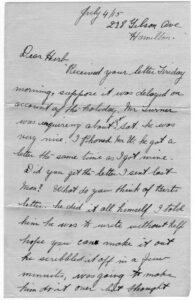 July 4/15
238 Gibson Ave
Hamilton.
Dear Herb
Received your letter Tuesday
morning, suppose it was delayed on
account of the holiday, Mr Turner
was enquiring about Sat. he was
very nice I phoned Mr he got a
letter the same time as I got mine.
Did you get the letter I sent last
Mon? What do you think of
letter he did it all himself I told
him he was to write without help
hope you can make it out
he scribbled it off in a few
minutes, was going to make
him do it over but thought